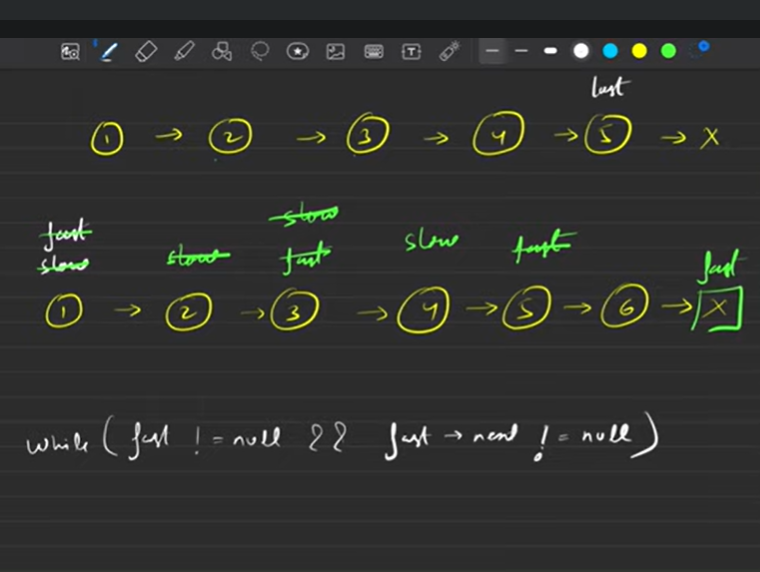 last
1 → 2 → 3 → 4 → 5 → X
slow
fast slow
slow slow fast fast fast
1 → 2 → 3 → 4 → 5 → 6 → X
while ( fast != null && fast → next != null )